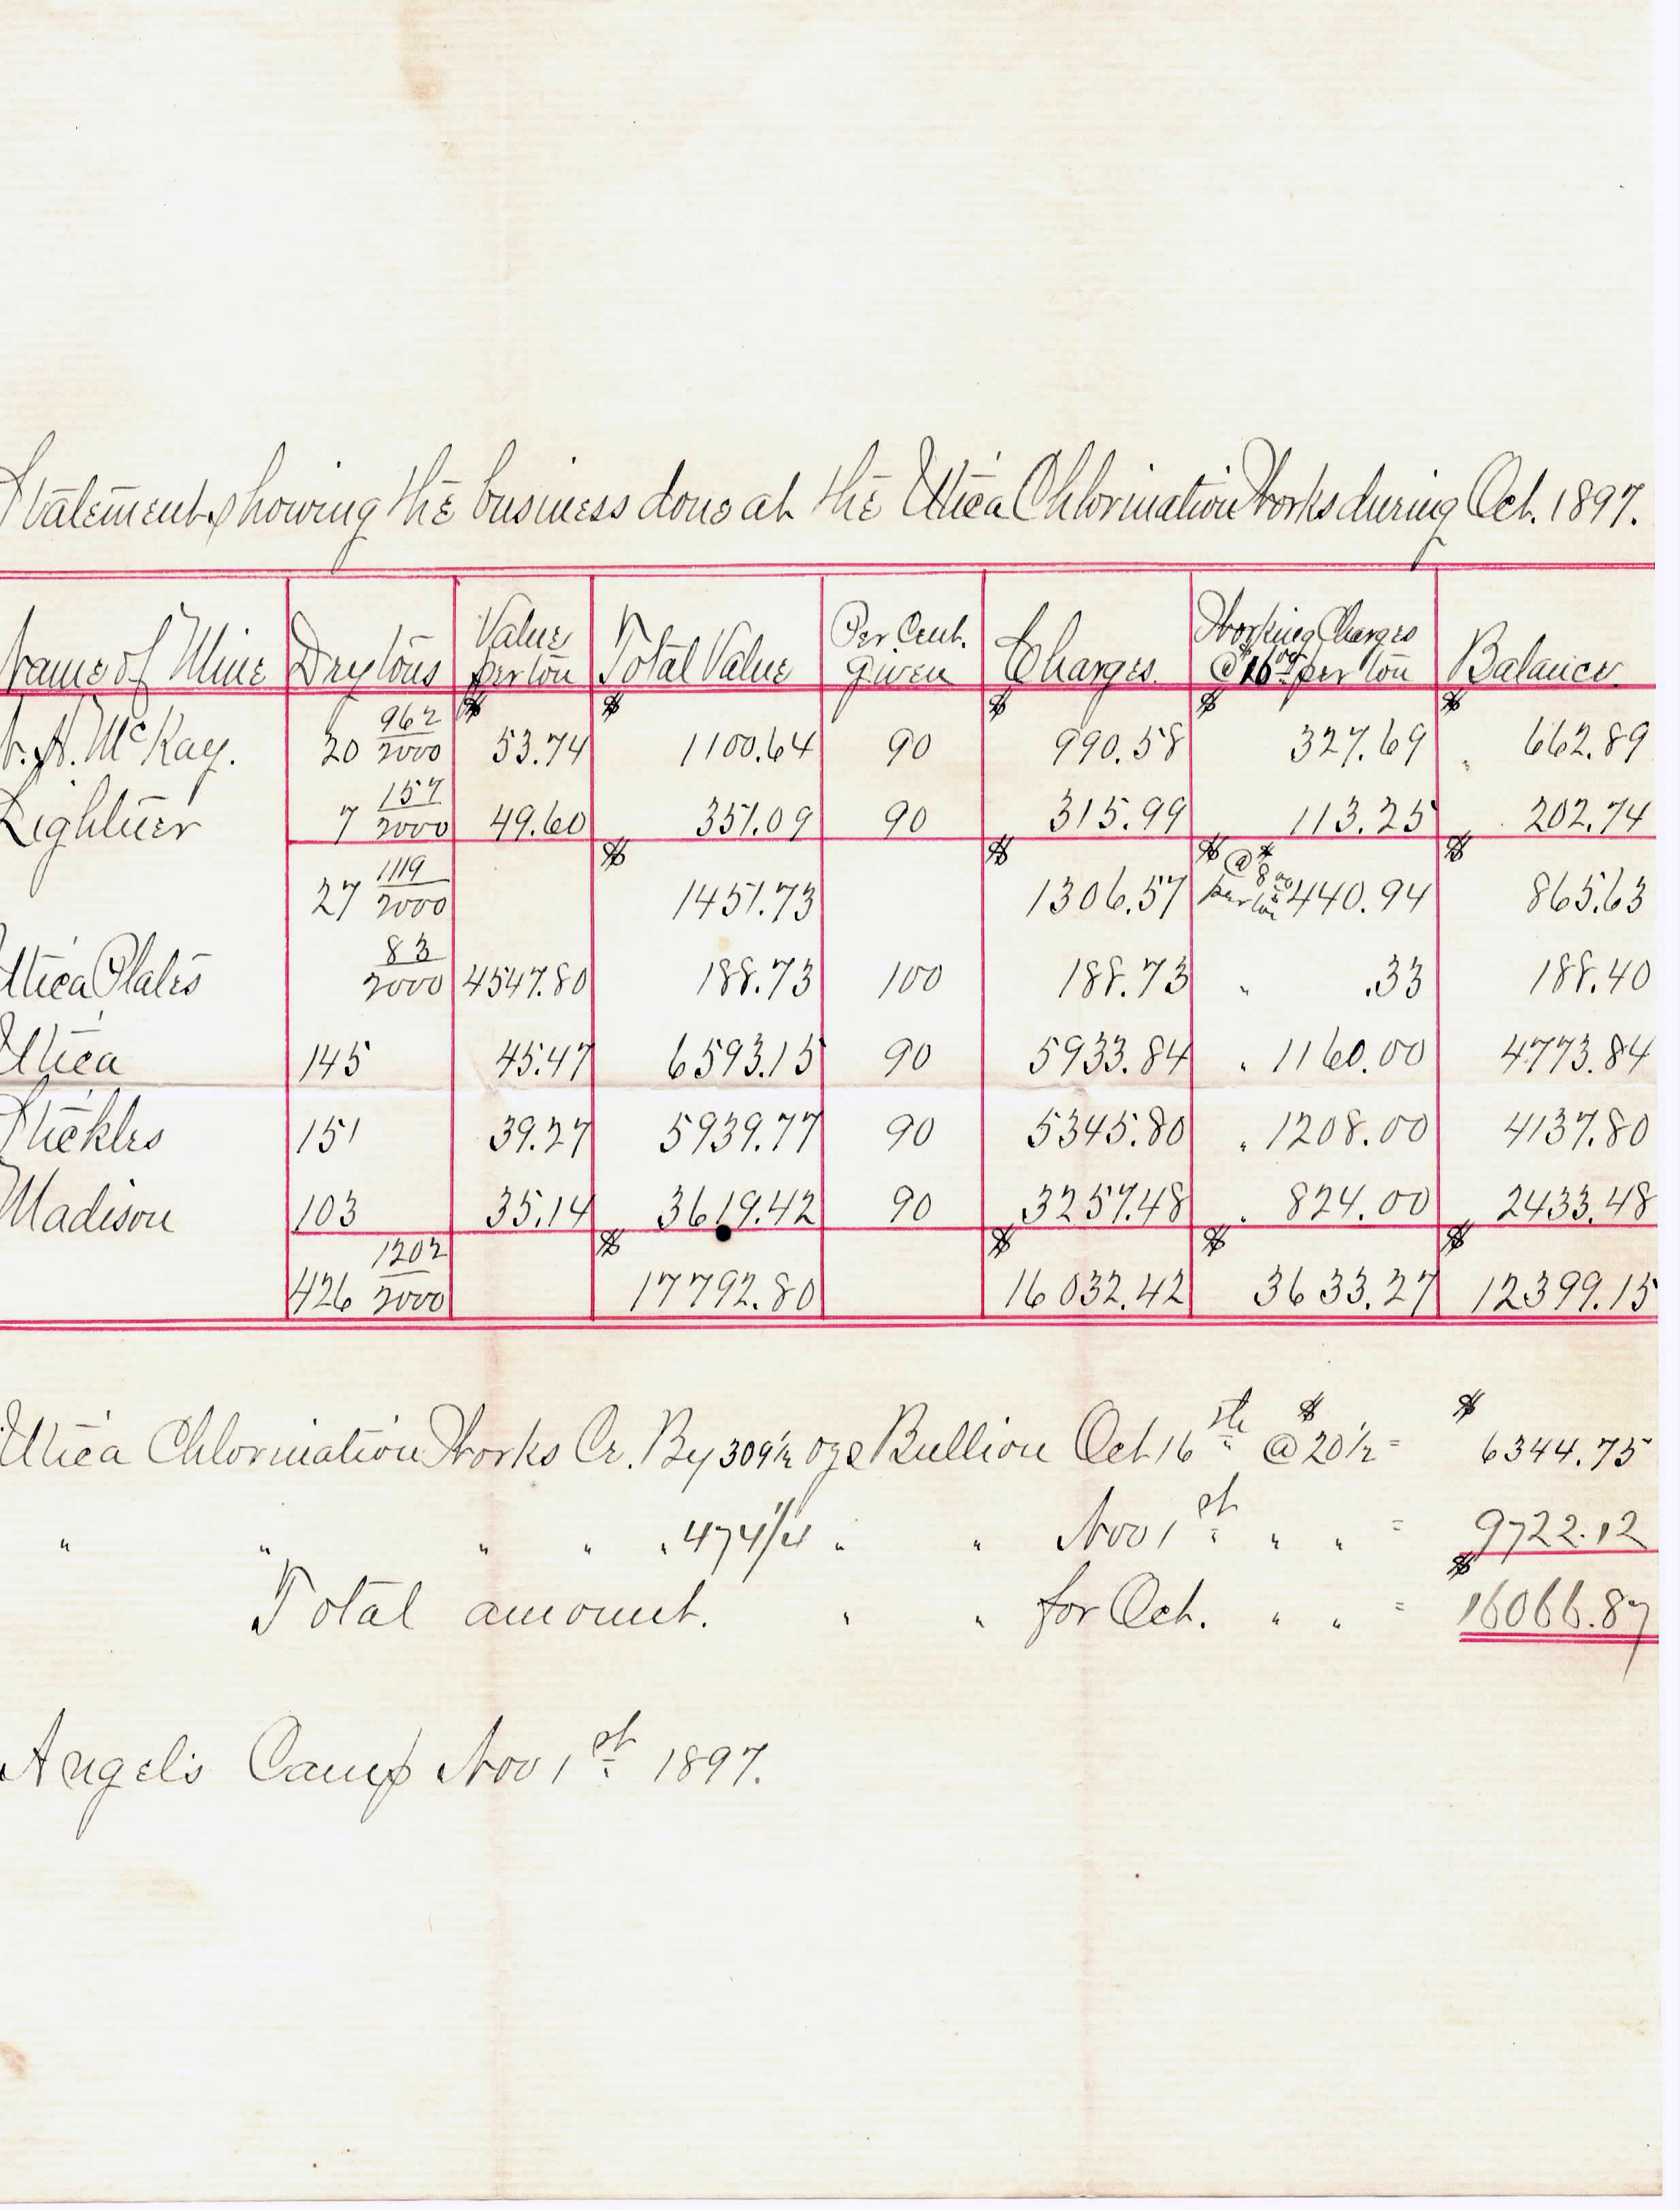 Statement showing the business done at the Utica Chlorination Works during Oct. 1897.
Name of Mine Dry tons Value per ton Total Value Per Cent. given Charges. Working Charges @ $16 00 per ton Balance
$ $ $ $ $
McKay. 20 962/2000 53.74 1100.64 90 990.58 327.69 662.89
Lightner 7 157/2000 49.60 351.09 90 315.99 113.25 202.74
27 1119/2000 $ 1451.73 $ 1306.57 $ 440.94 $ 865.63
@ $8 00 per ton
Utica Plates 83/2000 4547.80 188.73 100 188.73 " .33 188.40
Utica 145 45.47 6593.15 90 5933.84 " 1160.00 4773.84
Stickles 151 39.27 5939.77 90 5345.80 " 1208.00 4137.80
Madison 103 35.14 3619.42 90 3257.48 " 824.00 2433.48
426 1202/2000 $ 17792.80 $ 16032.42 $ 3633.27 $ 12399.15
Utica Chlorination Works Cr. By 309½ ozs Bullion Oct 16th @ $20½ = $ 6344.75
" " " " " 474¼ " " Nov 1st " " = 9722.12
Total amount. " " for Oct. " " = $ 16066.87
Angels Camp Nov 1st 1897.